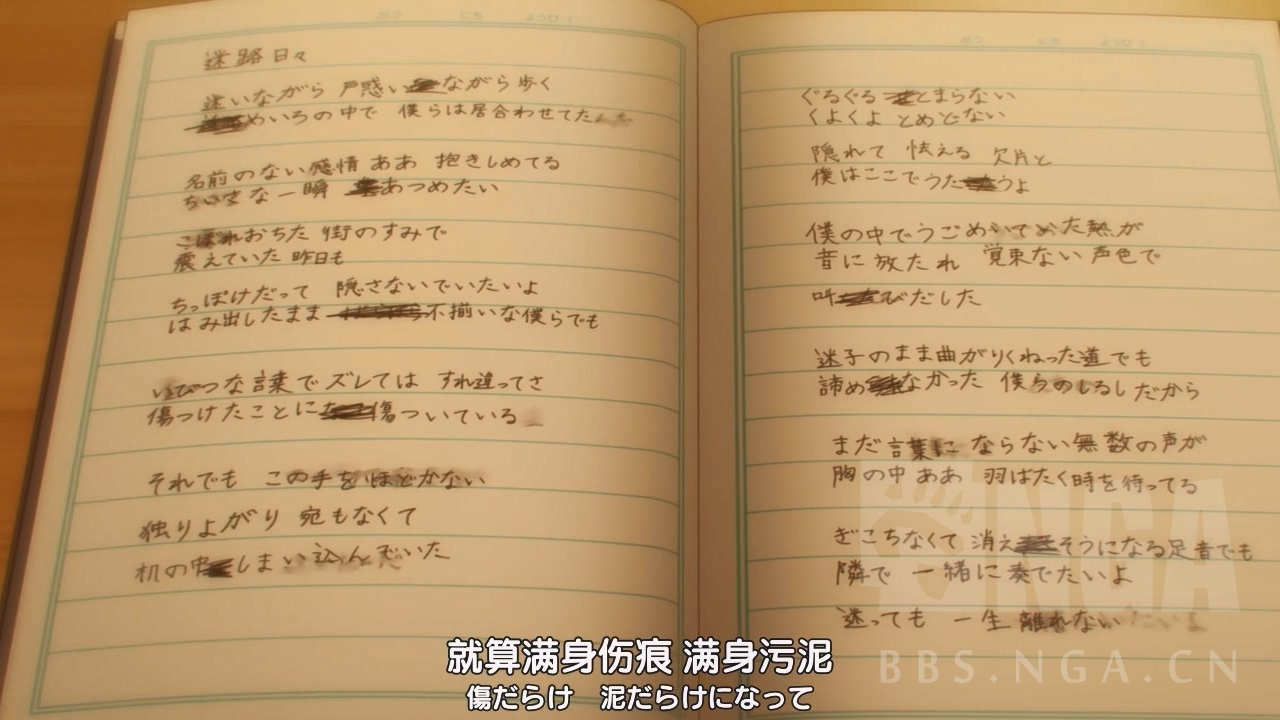 迷路日々
迷いながら 戸惑いながら歩く
めいろの中で 僕らは居合わせてた
名前のない感情 ああ 抱きしめてる
ちいさな一瞬 あつめたい
こぼれおちた 街のすみで
震えていた 昨日も
ちっぽけだって 隠さないでいたいよ
はみ出したまま 不揃いな僕らでも
いびつな言葉でズレては すれ違ってさ
傷つけたことに傷ついている
それでも この手をほどかない
独りよがり 宛もなくて
机の中しまい込んでいた
ぐるぐる とまらない
くよくよ とめどない
隠れて 怯える 欠片と
僕はここでうたうよ
僕の中でうごめいてめた熱が
音に放たれ 覚束ない声色で
叫びだした
迷子のまま曲がりくねった道でも
諦めなかった 僕らのしるしだから
まだ言葉に ならない無数の声が
胸の中 ああ 羽ばたく時を待ってる
ぎこちなくて 消えそうになる足音でも
隣で 一緒に奏でたいよ
迷っても 一生 離れない
NGA
BBS.NGA.CN
就算满身伤痕 满身污泥
傷だらけ 泥だらけになって